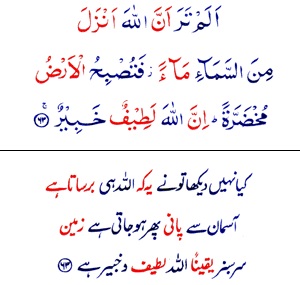 اَلَمْ تَرَ اَنَّ اللّٰهَ اَنْزَلَ
مِنَ السَّمَآءِ مَآءً ؗ فَتُصْبِحُ الْاَرْضُ
مُخْضَرَّةً ؕ اِنَّ اللّٰهَ لَطِیْفٌ خَبِیْرٌ ۚ﴿۶۳﴾
کیا نہیں دیکھا تو نے یہ کہ اللہ ہی برساتا ہے
آسمان سے پانی پھر ہو جاتی ہے زمین
سرسبز یقیناً اللہ لطیف و خبیر ہے ﴿۶۳﴾